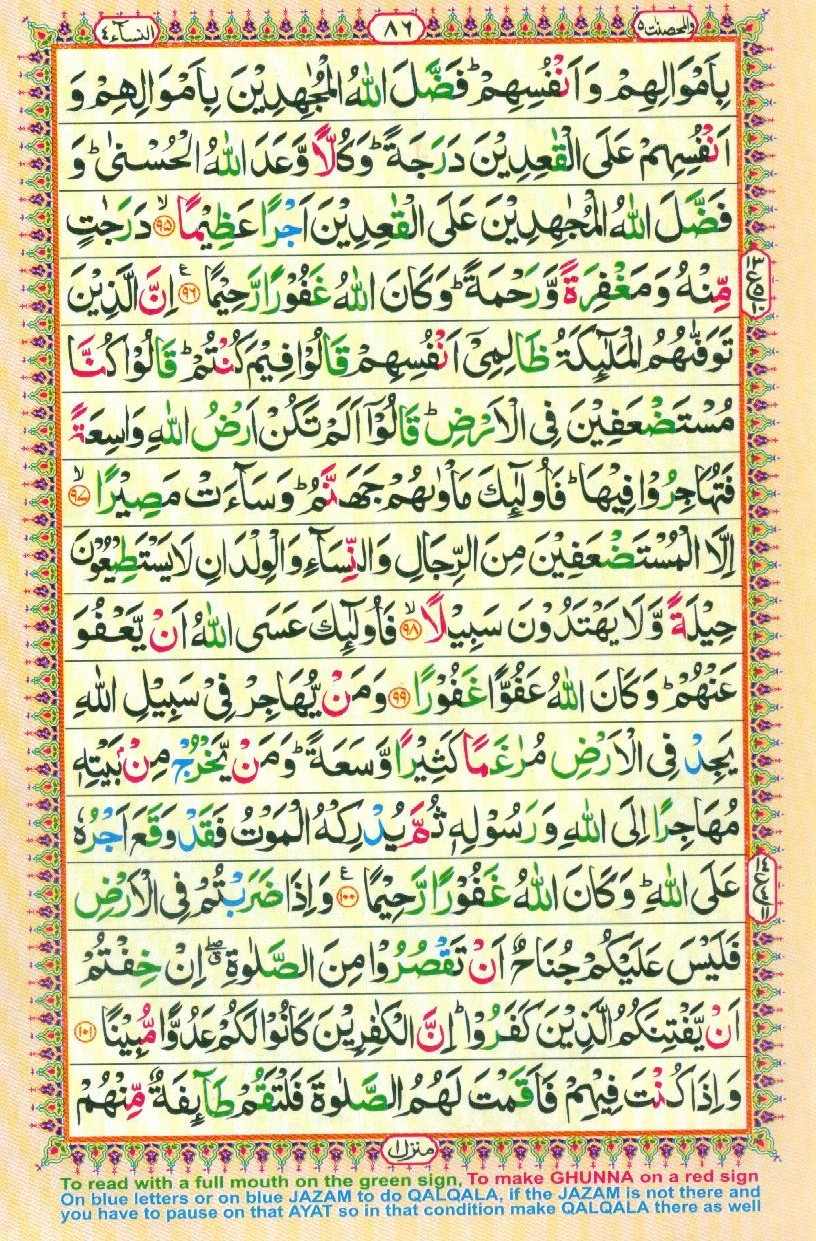 النسآء٤
٨٦
والمحصنٰت٥
بِاَمْوَالِهِمْ وَاَنْفُسِهِمْ ؕ فَضَّلَ اللّٰهُ الْمُجٰهِدِيْنَ بِاَمْوَالِهِمْ وَ
اَنْفُسِهِمْ عَلَى الْقٰعِدِيْنَ دَرَجَةً ؕ وَكُلًّا وَّعَدَ اللّٰهُ الْحُسْنٰى ؕ وَ
فَضَّلَ اللّٰهُ الْمُجٰهِدِيْنَ عَلَى الْقٰعِدِيْنَ اَجْرًا عَظِيْمًا ۙ ﴿٩٥﴾ دَرَجٰتٍ
مِّنْهُ وَمَغْفِرَةً وَّرَحْمَةً ؕ وَكَانَ اللّٰهُ غَفُوْرًا رَّحِيْمًا ﴿٩٦﴾ ع اِنَّ الَّذِيْنَ
تَوَفّٰٮهُمُ الْمَلٰٓٮِٕكَةُ ظَالِمِىْۤ اَنْفُسِهِمْ قَالُوْا فِيْمَ كُنْتُمْ ؕ قَالُوْا كُنَّا
مُسْتَضْعَفِيْنَ فِى الْاَرْضِ ؕ قَالُوْۤا اَلَمْ تَكُنْ اَرْضُ اللّٰهِ وَاسِعَةً
فَتُهَاجِرُوْا فِيْهَا ؕ فَاُولٰٓٮِٕكَ مَاْوٰٮهُمْ جَهَنَّمُ ؕ وَسَآءَتْ مَصِيْرًا ۙ ﴿٩٧﴾
اِلَّا الْمُسْتَضْعَفِيْنَ مِنَ الرِّجَالِ وَالنِّسَآءِ وَالْوِلْدَانِ لَا يَسْتَطِيْعُوْنَ
حِيْلَةً وَّلَا يَهْتَدُوْنَ سَبِيْلًا ۙ ﴿٩٨﴾ فَاُولٰٓٮِٕكَ عَسَى اللّٰهُ اَنْ يَّعْفُوَ
عَنْهُمْ ؕ وَكَانَ اللّٰهُ عَفُوًّا غَفُوْرًا ﴿٩٩﴾ وَمَنْ يُّهَاجِرْ فِىْ سَبِيْلِ اللّٰهِ
يَجِدْ فِى الْاَرْضِ مُرٰغَمًا كَثِيْرًا وَّسَعَةً ؕ وَمَنْ يَّخْرُجْ مِنْۢ بَيْتِهٖ
مُهَاجِرًا اِلَى اللّٰهِ وَرَسُوْلِهٖ ثُمَّ يُدْرِكْهُ الْمَوْتُ فَقَدْ وَقَعَ اَجْرُهٗ
عَلَى اللّٰهِ ؕ وَكَانَ اللّٰهُ غَفُوْرًا رَّحِيْمًا ﴿١٠٠﴾ ع وَاِذَا ضَرَبْتُمْ فِى الْاَرْضِ
فَلَيْسَ عَلَيْكُمْ جُنَاحٌ اَنْ تَقْصُرُوْا مِنَ الصَّلٰوةِ ۖ اِنْ خِفْتُمْ
اَنْ يَّفْتِنَكُمُ الَّذِيْنَ كَفَرُوْا ؕ اِنَّ الْكٰفِرِيْنَ كَانُوْا لَكُمْ عَدُوًّا مُّبِيْنًا ﴿١٠١﴾
وَاِذَا كُنْتَ فِيْهِمْ فَاَقَمْتَ لَهُمُ الصَّلٰوةَ فَلْتَقُمْ طَآٮِٕفَةٌ مِّنْهُمْ
منزل١
To read with a full mouth on the green sign, To make GHUNNA on a red sign
On blue letters or on blue JAZAM to do QALQALA, if the JAZAM is not there and
you have to pause on that AYAT so in that condition make QALQALA there as well